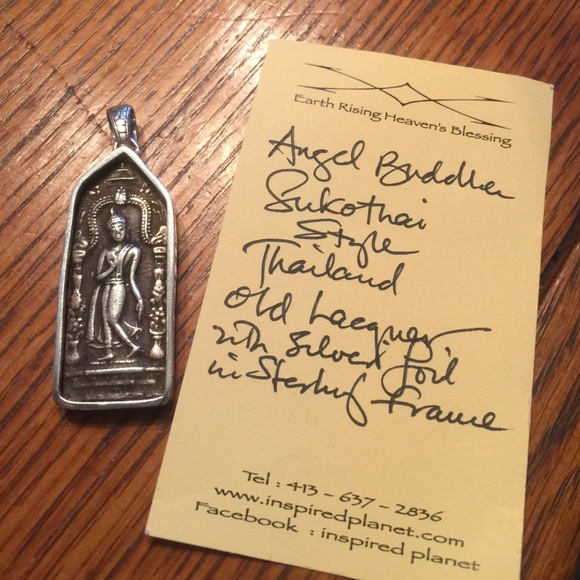 Earth Rising Heaven's Blessing
Angel Buddha
Sukothai
Style
Thailand
Old Lacquer
with Silver foil
in Sterling Frame
Tel : 413 - 637 - 2836
www.inspiredplanet.com
Facebook : inspired planet